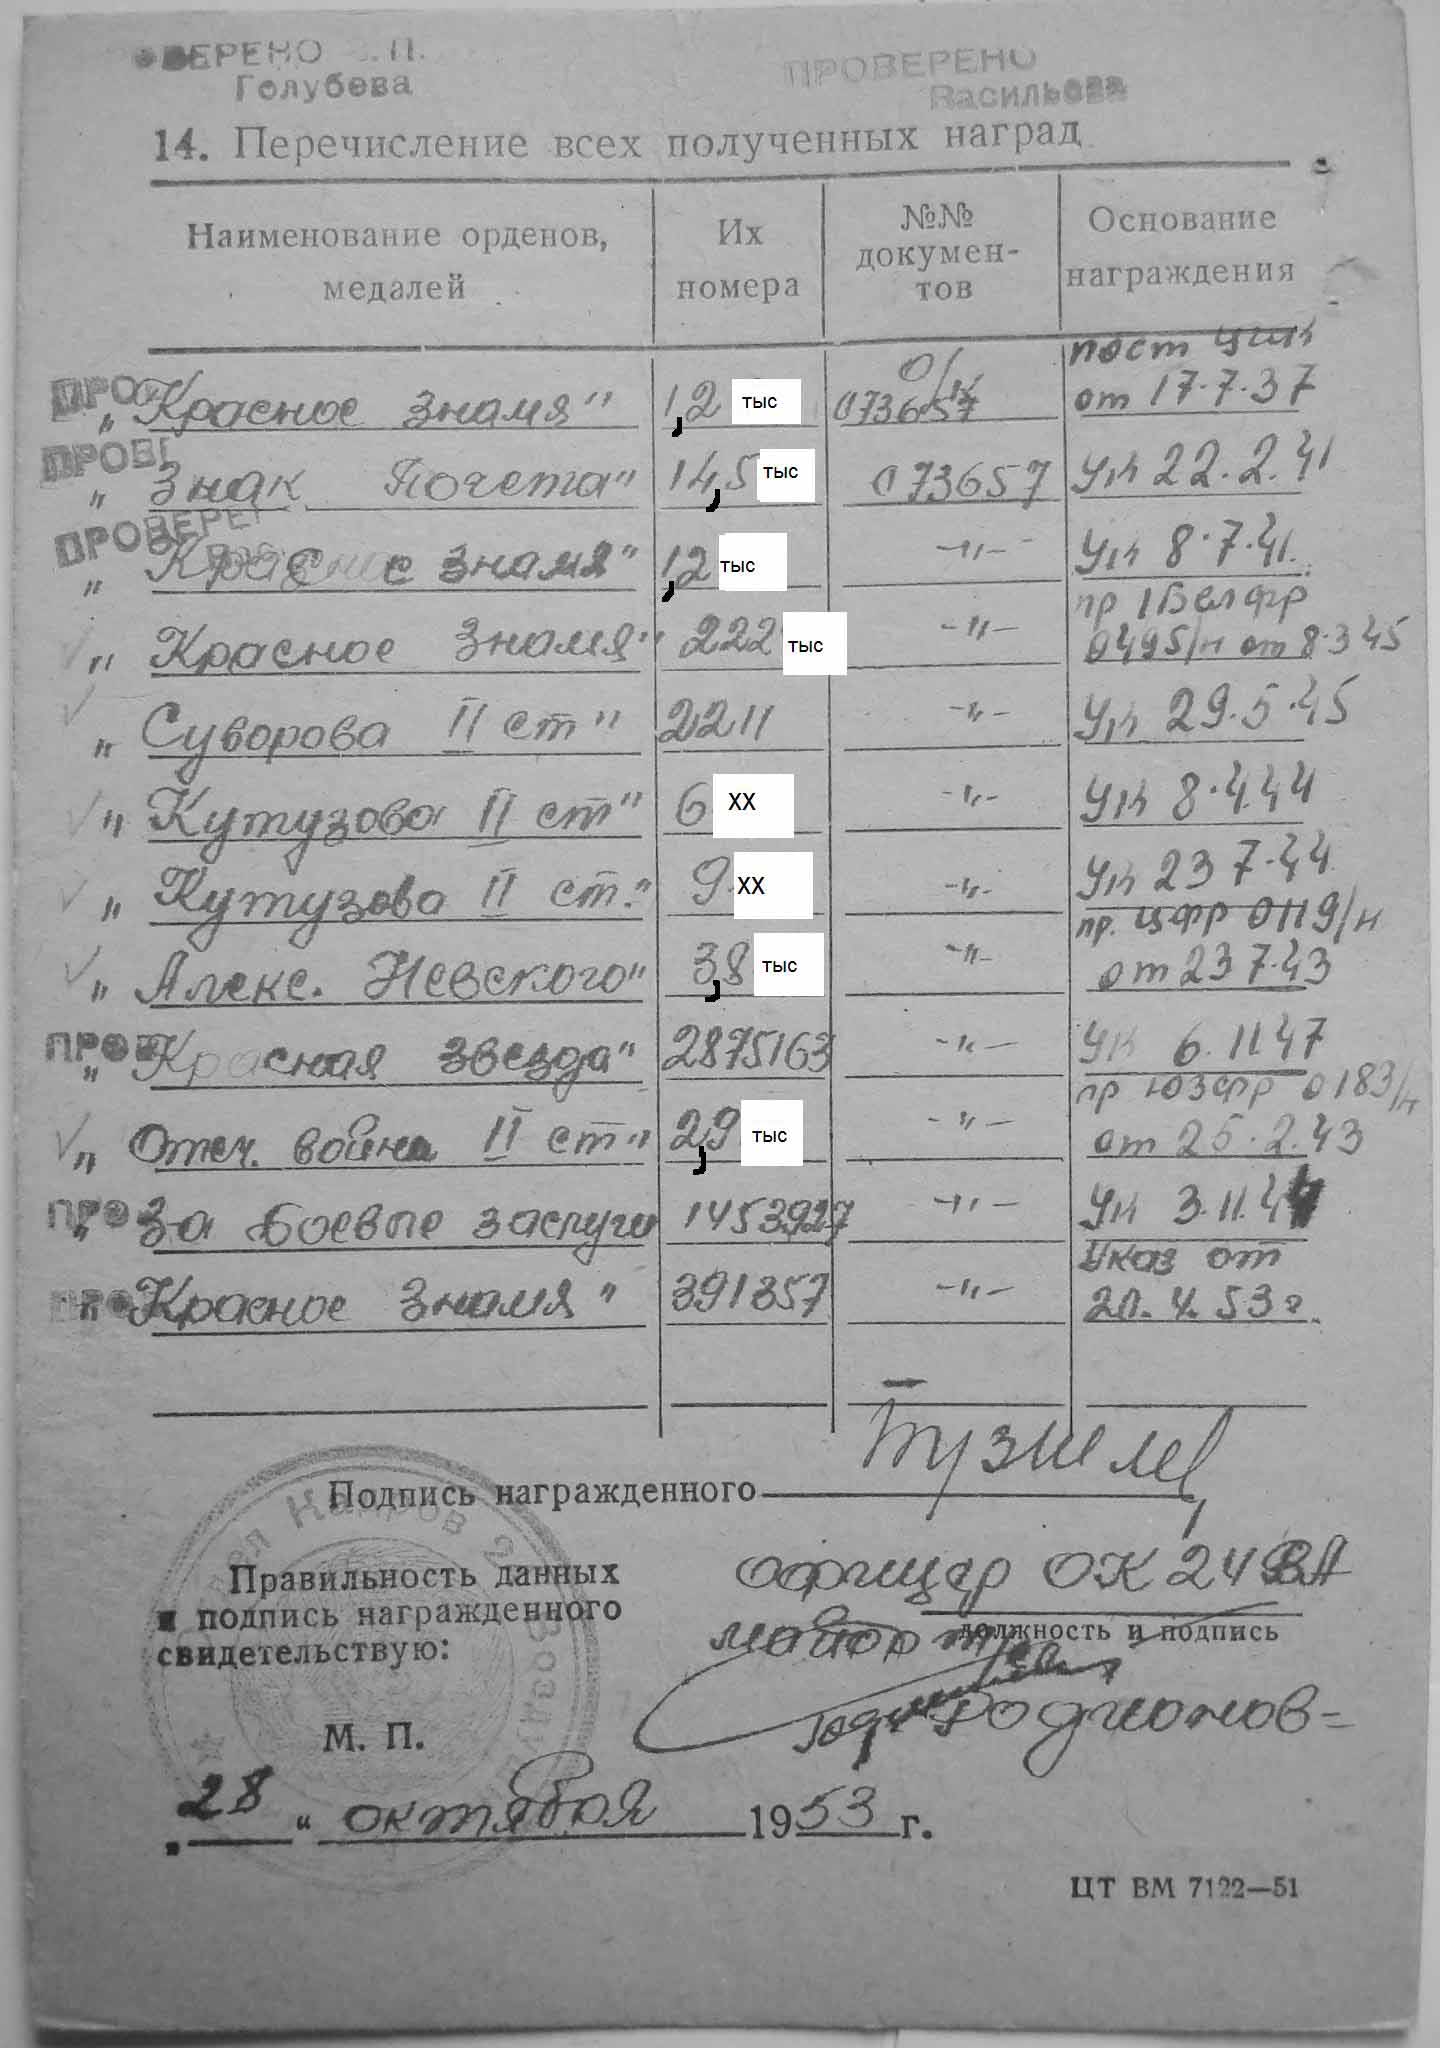 ВЕРЕНО . П.
Голубева
ПРОВЕРЕНО
Васильева
14. Перечисление всех полученных наград
Наименование орденов, медалей
Их номера
№№ докумен-тов
Основание награждения
ПРО „Красное знамя" 1,2 тыс 073657 пост ЦИК от 17.7.37
ПРОВЕ „Знак Почета" 14,5 тыс 073657 Ук 22.2.41
ПРОВЕРЕ „Красное знамя" 1,2 тыс -"- Ук 8.7.41.
„Красное Знамя" 222 тыс -"- пр 1Белфр 0495/н от 8.3.45
„Суворова II ст" 2211 -"- Ук 29.5.45
„Кутузова II ст" 6 XX -"- Ук 8.4.44
„Кутузова II ст." 9 XX -"- Ук 23 7.44
„Алекс. Невского" 3,8 тыс -"- пр. ЦФР 0119/н от 23 7.43
ПРОВ „Красная звезда" 2875163 -"- Ук 6.11.47
„Отеч. война II ст" 2,9 тыс -"- пр ЮЗФР 0183/н от 25.2.43
ПРО „За боевые заслуги 1453927 -"- Ук 3.11.44
ПРО „Красное Знамя" 391357 -"- Указ от 20.4.53г.
Подпись награжденного
Правильность данных
и подпись награжденного
свидетельствую:
офицер ОК 24 ВА
должность и подпись
майор
Родионов
М. П.
„28" октября 1953 г.
ЦТ ВМ 7122—51